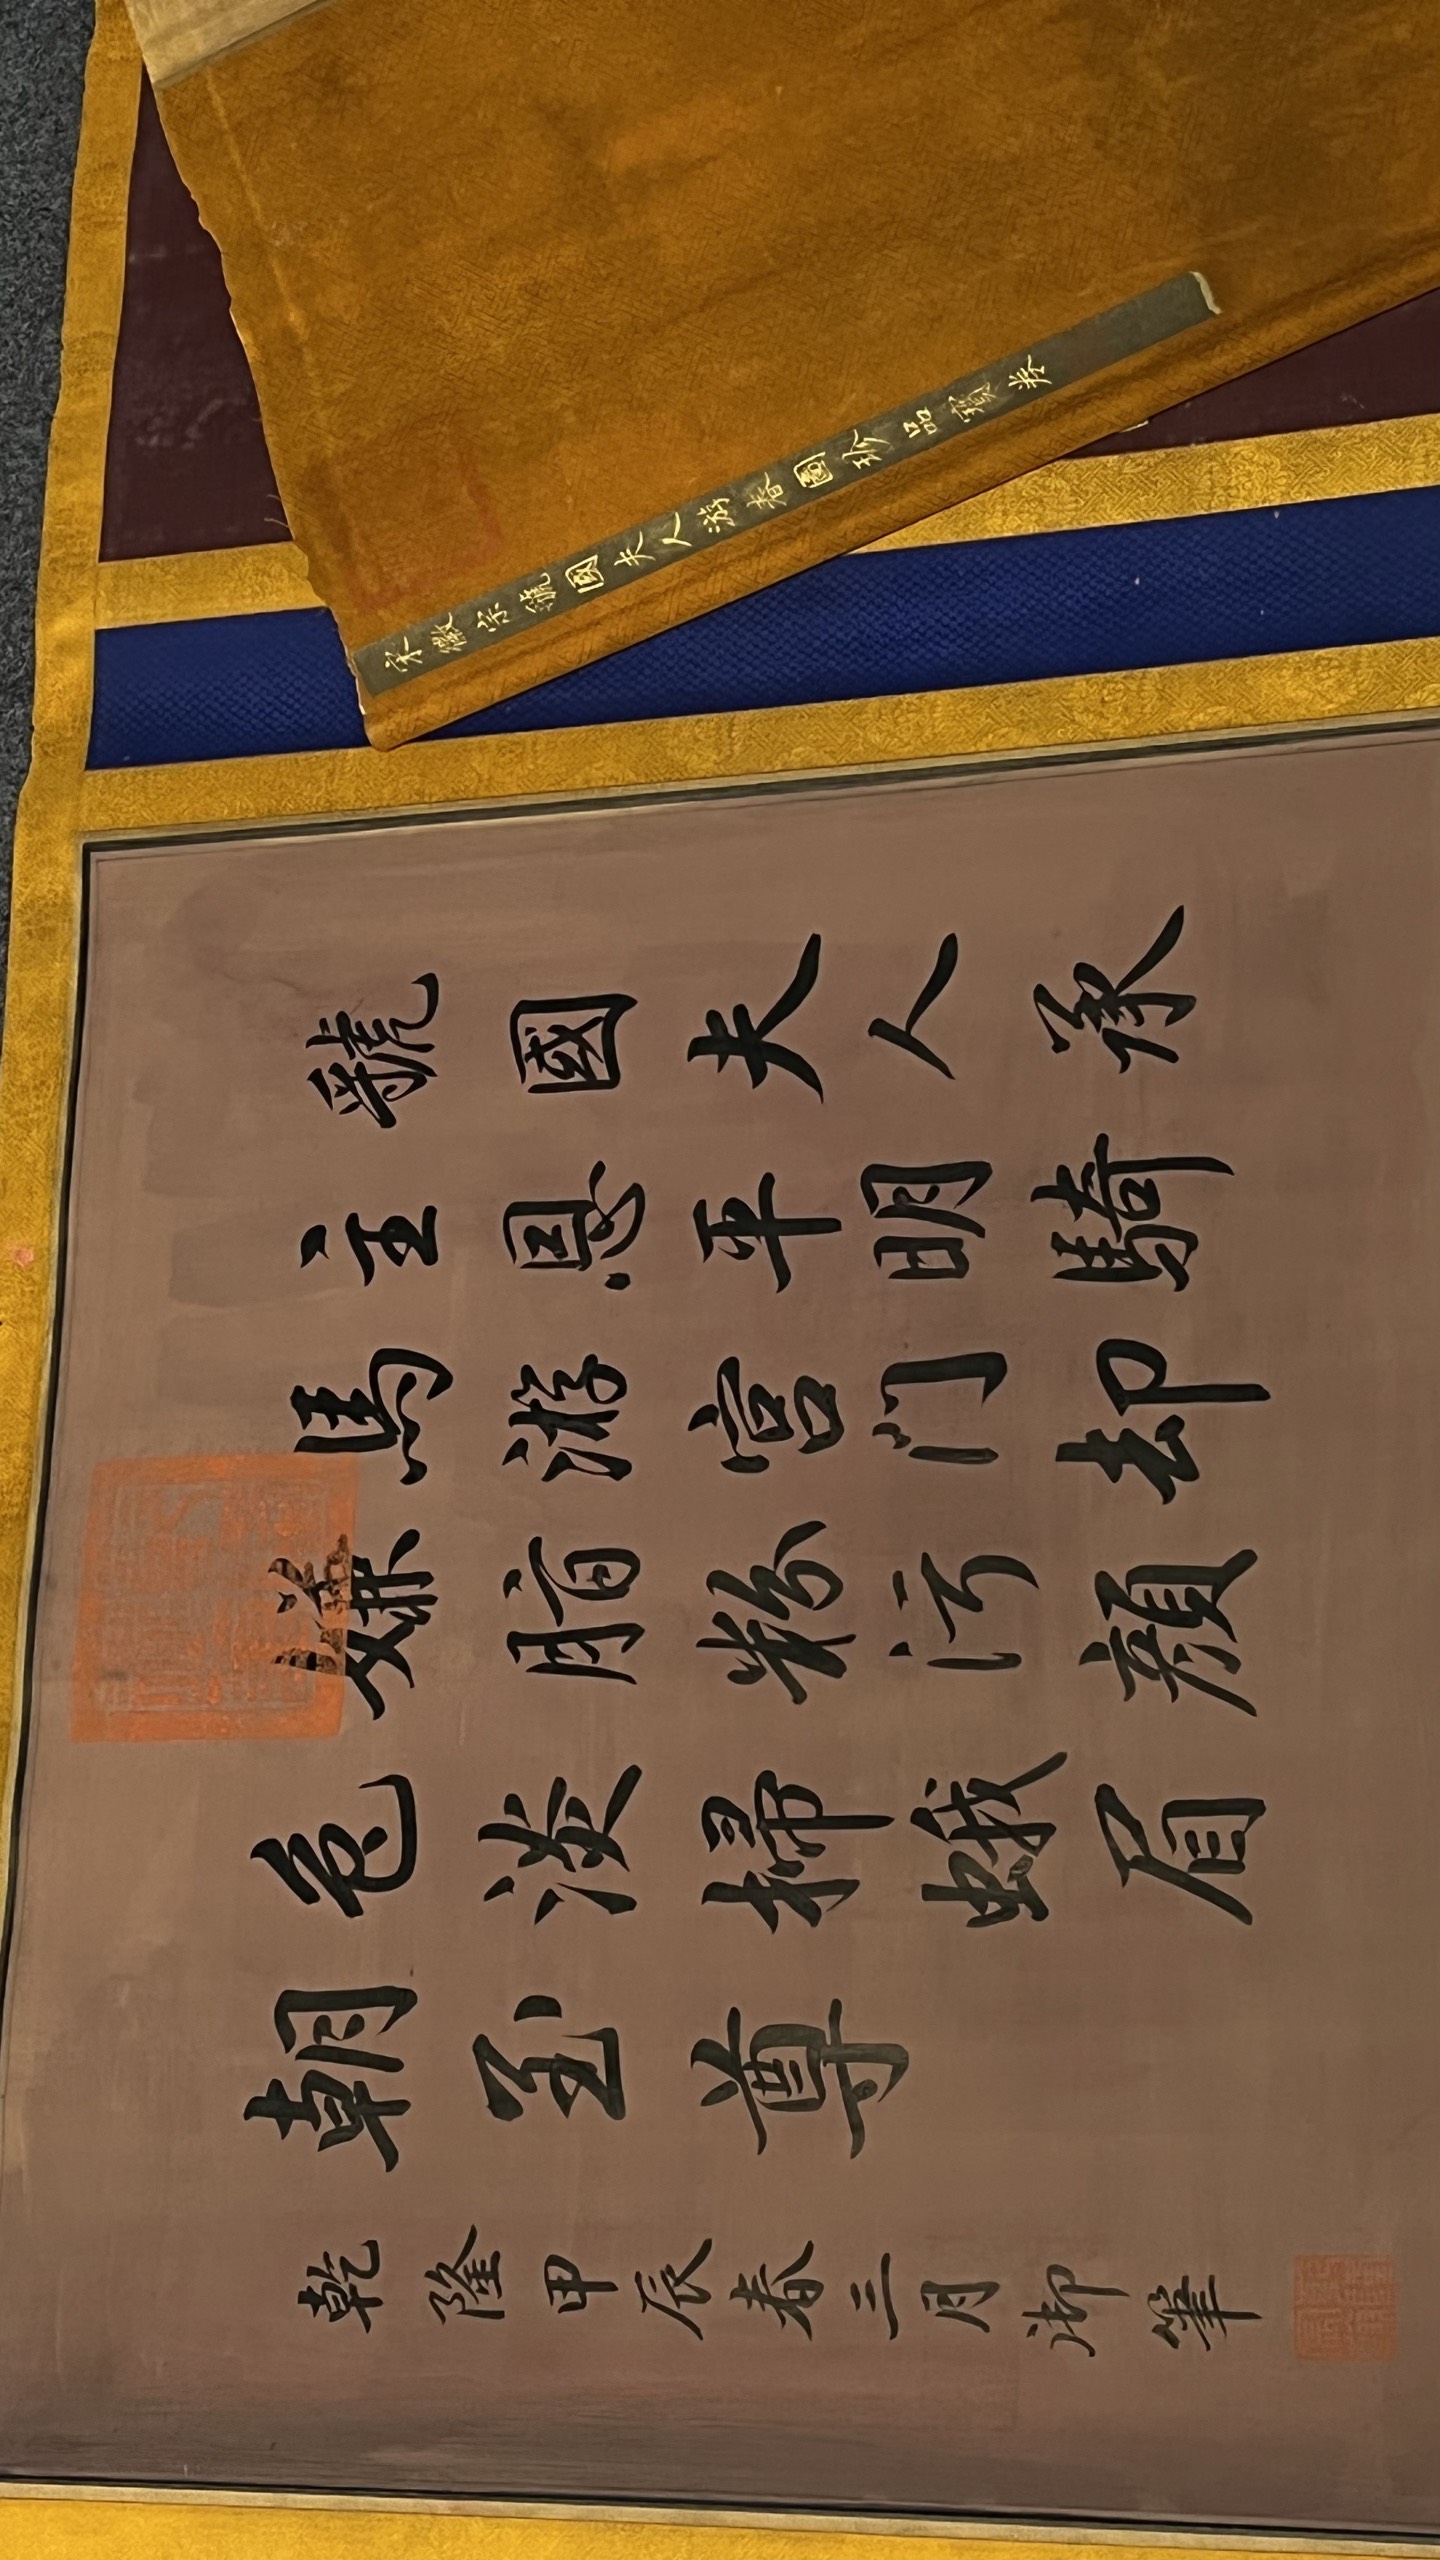 宋徽宗虢國夫人游春圖珍品寶卷
虢國夫人承
主恩平明騎
馬游宫门却
嫌脂粉污顏
色淡掃蛾眉
朝至尊
乾隆甲辰春三月御筆